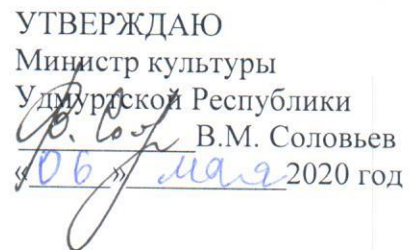 УТВЕРЖДАЮ
Министр культуры
Удмуртской Республики
В.М. Соловьев
«06» мая 2020 год